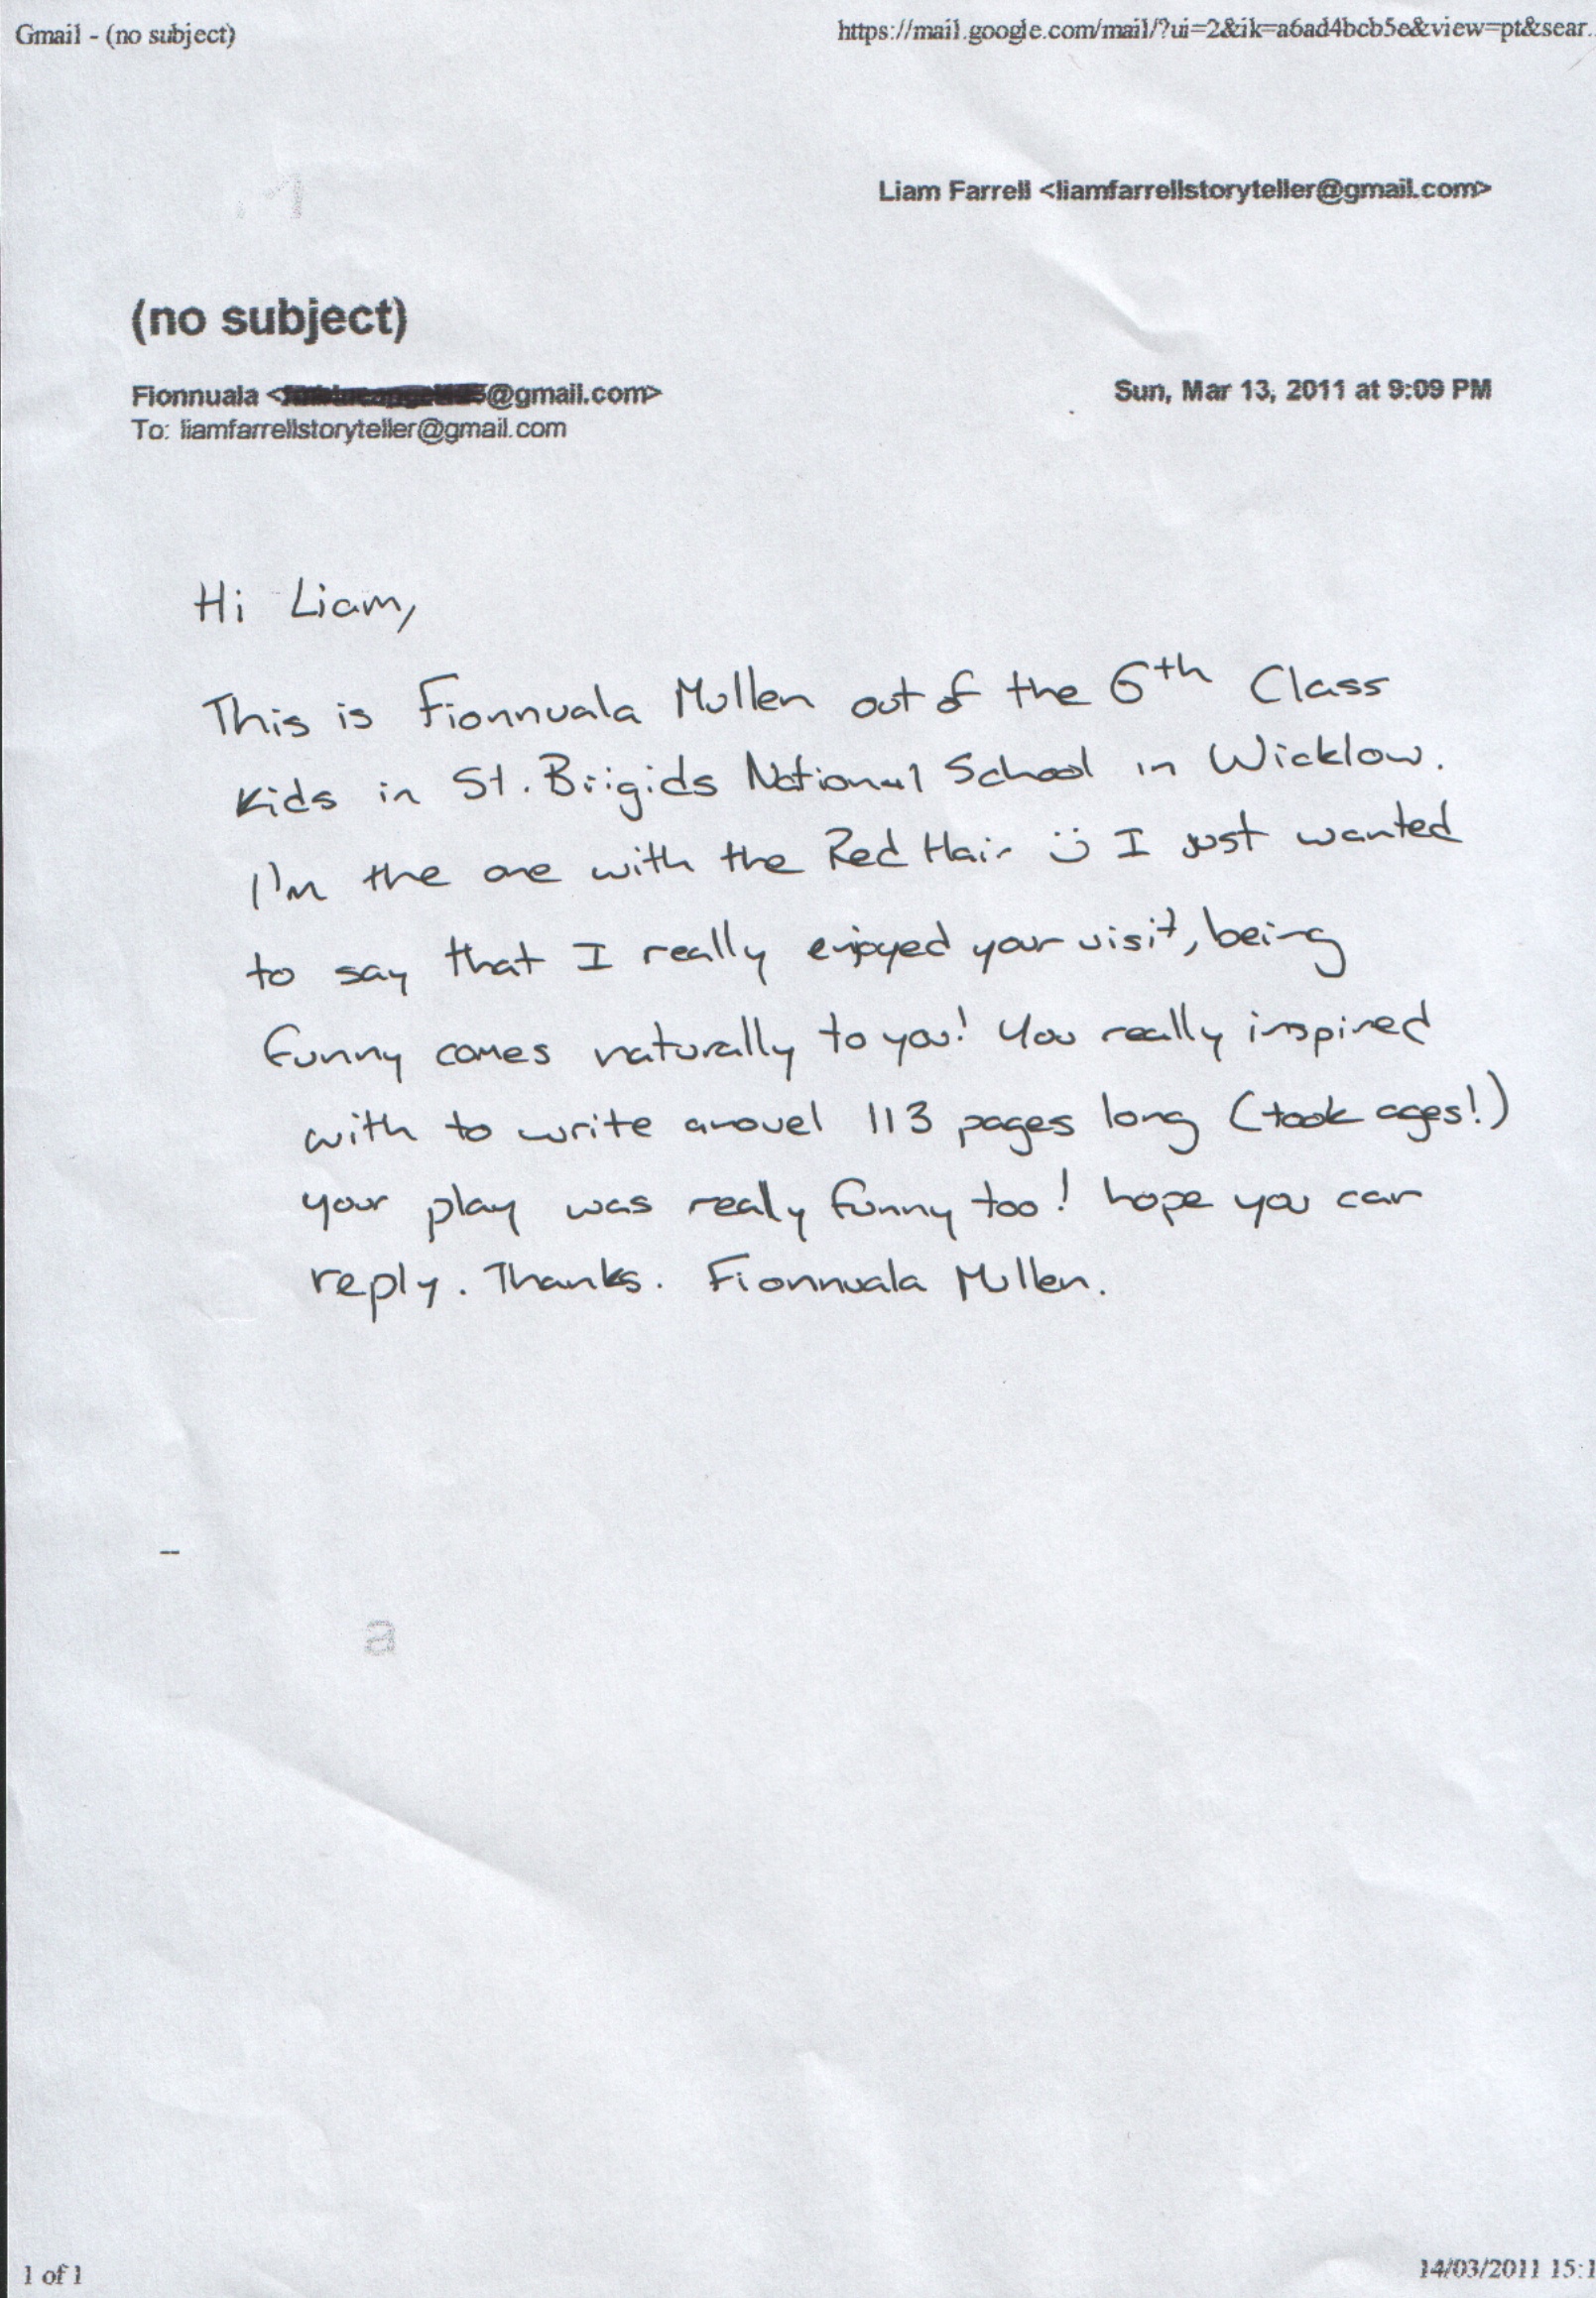 Gmail - (no subject) https://mail.google.com/mail/?ui=2&ik=a6ad4bcb5e&view=pt&sear...
Liam Farrell <liamfarrellstoryteller@gmail.com>
(no subject)
Fionnuala < @gmail.com> Sun, Mar 13, 2011 at 9:09 PM
To: liamfarrellstoryteller@gmail.com
Hi Liam,
This is Fionnuala Mullen out of the 6th Class
Kids in St. Brigids National School in Wicklow.
I'm the one with the Red Hair :) I just wanted
to say that I really enjoyed your visit, being
funny comes naturally to you! You really inspired
with to write a novel 113 pages long (took ages!)
your play was really funny too! hope you can
reply. Thanks. Fionnuala Mullen.
--
a
1 of 1 14/03/2011 15:1